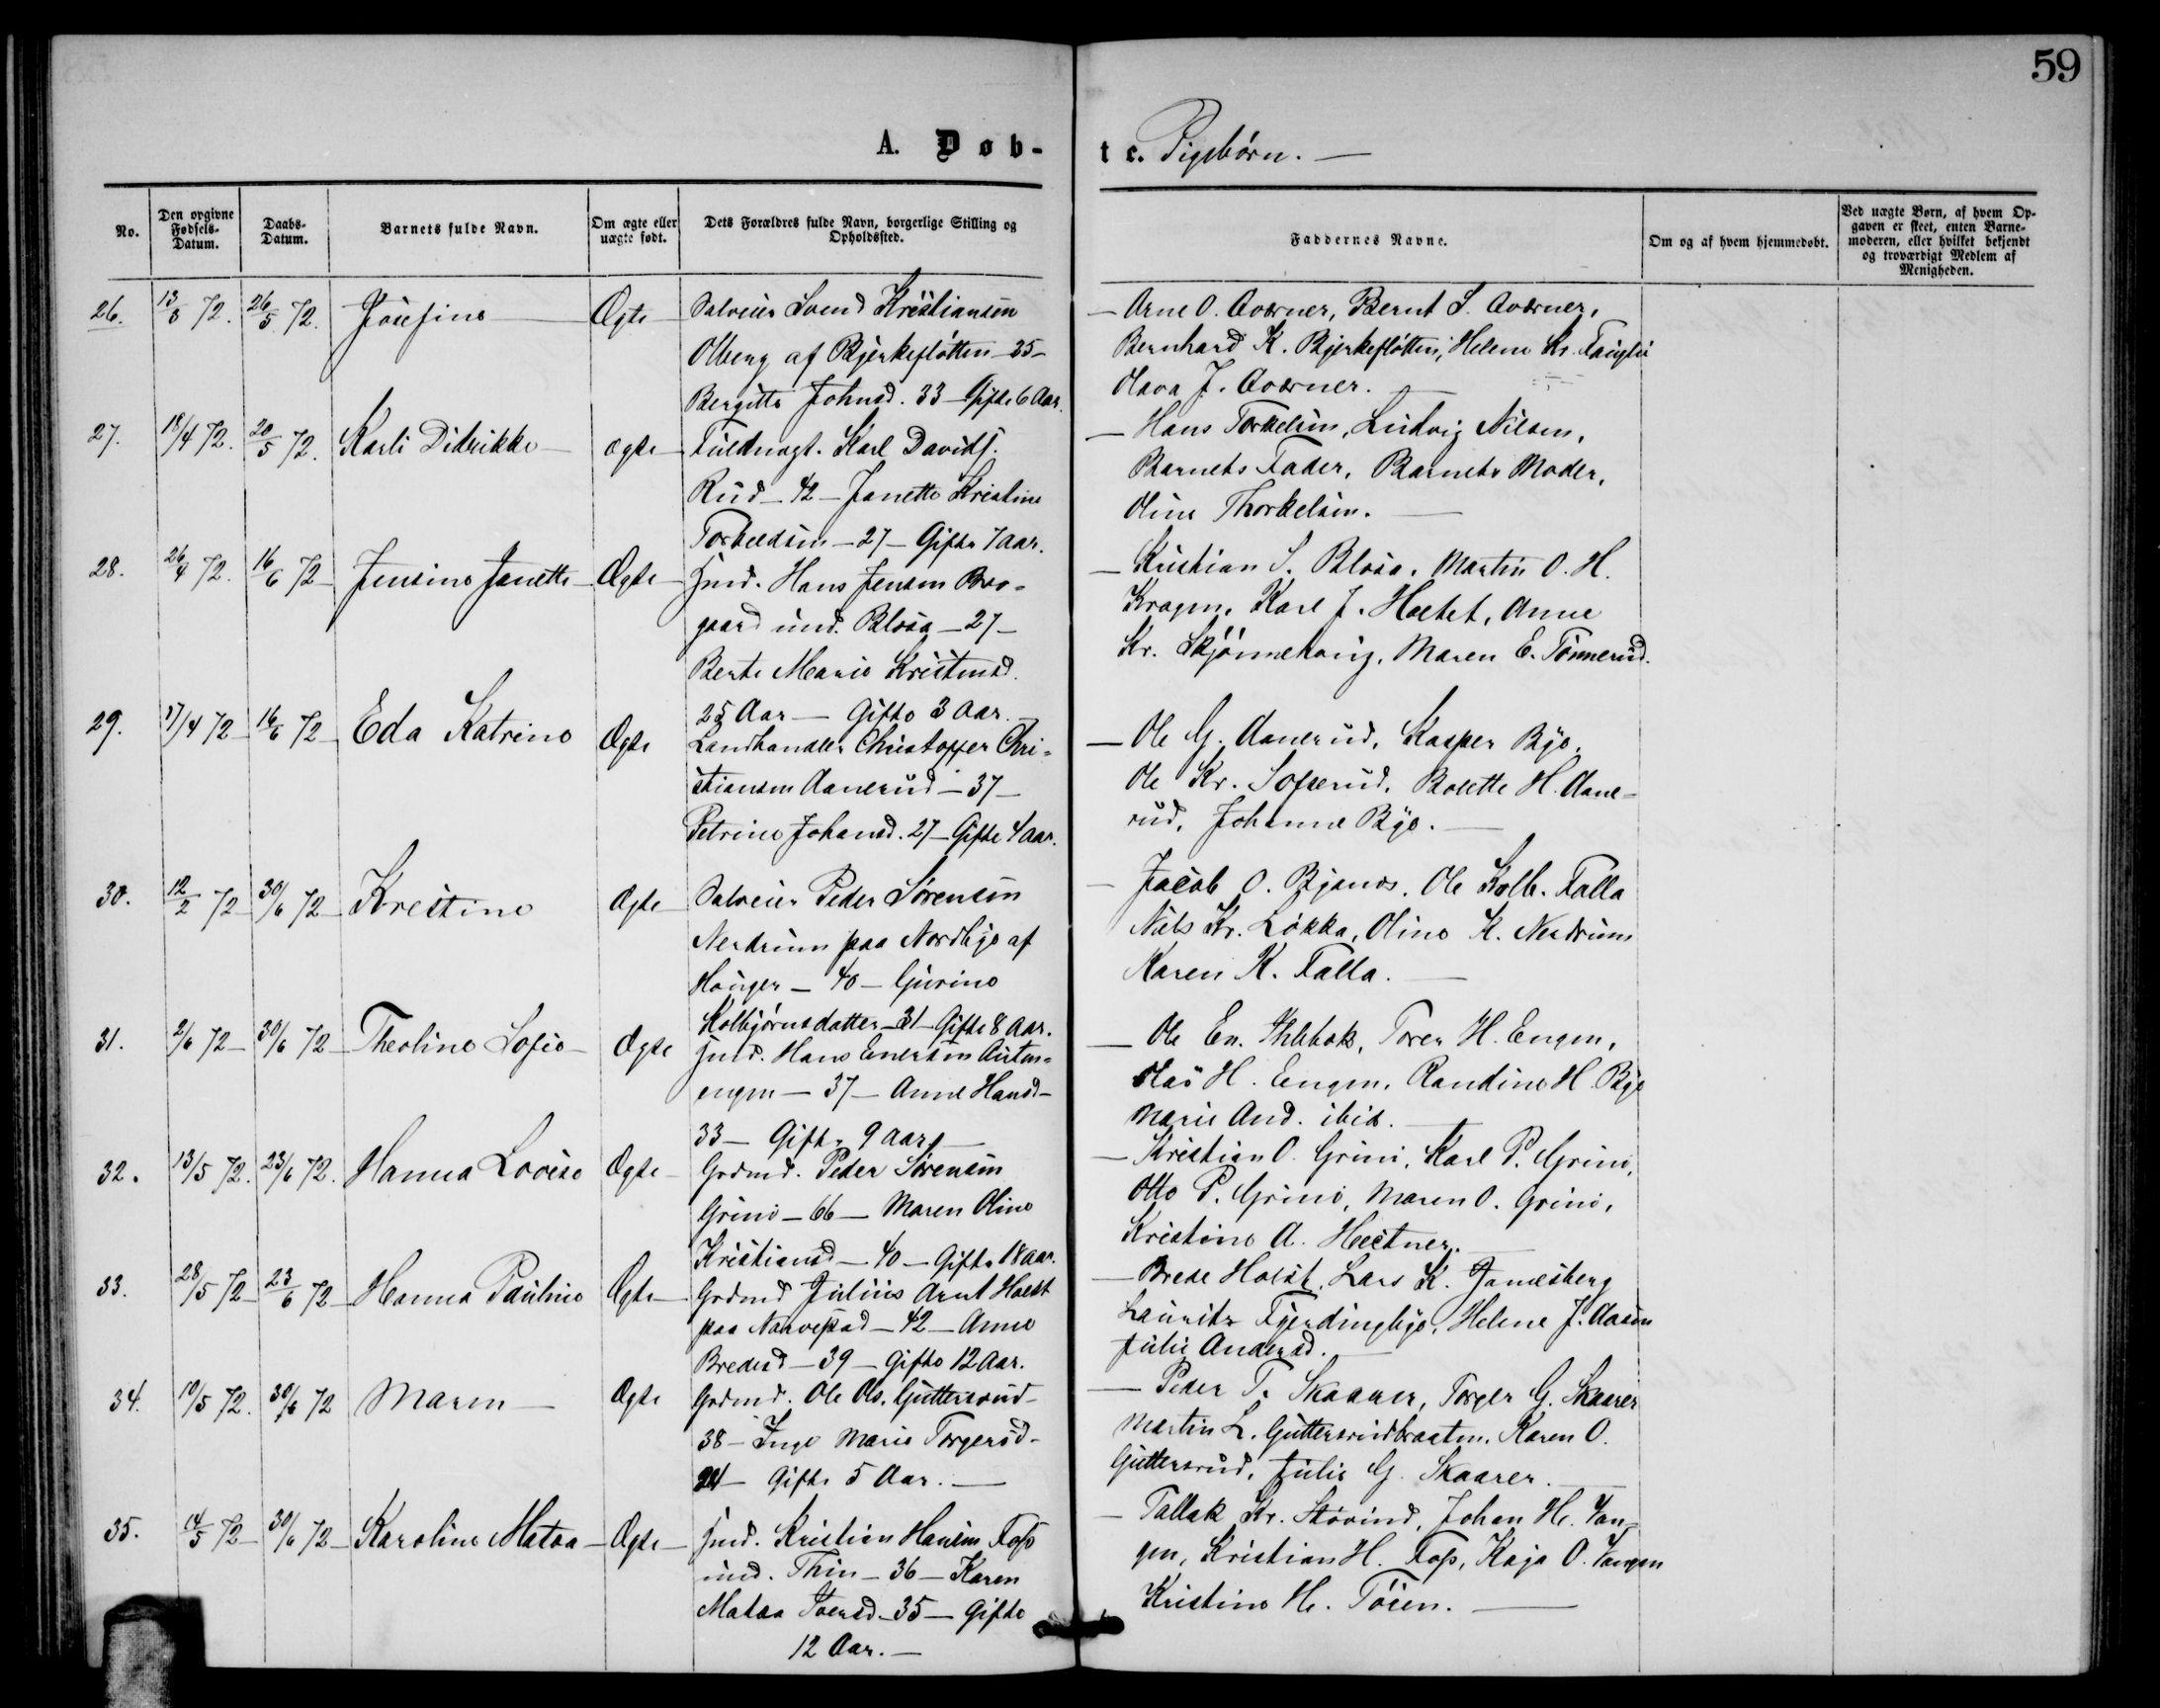 59
A. Døb-
te. Pigebørn. —
No.
Den opgivne Fødsels-Datum.
Daabs-Datum.
Barnets fulde Navn.
Om ægte eller uægte født.
Dets Forældres fulde Navn, borgerlige Stilling og Opholdssted.
Faddernes Navne.
Om og af hvem hjemmedøbt.
Ved uægte Børn, af hvem Opgaven er skeet, enten Barnemoderen, eller hvilket bekjendt og troværdigt Medlem af Menigheden.
26. 72. 26/5 72. Josefine Ægte Selveier Svend Kristiansen
Olberg af Bjerkefløtten — 35 —
Bergitte Johnsd. 33 — Gifte 6 Aar.
— Arne O. Aværner, Bernt S. Aværner,
Bernhard K. Bjerkefløtten, Helene Kr.
Olava J. Aværner.
27. 18/4 72. 20/5 72. Karli Didrikke — ægte — Fuldmægt. Karl Davids.
Rud — 42 — Janette Kristine
27 — Gifte 7 Aar.
— Hans Torkelsen, Ludvig Nilsen,
Barnets Fader, Barnets Moder,
Oline Thorkelsen. —
28. 26/4 72. 16/6 72 — Jensine Janette — Ægte — Hmd. Hans Jensen Bro-
gaard und. Blosa — 27 —
Berte Marie Kristensd.
25 Aar — Gifte 3 Aar. —
— Kristian S. Blosa, Martin O. H.
Kragen, Karl J. Hoctet, Anne
Kr. Skjønnehaug, Maren E. Tønnerud.
29. 17/4 72 — 16/6 72 — Eda Katrine Ægte Landhandler Christopher Chri-
stiansen Aanerud — 37 —
Petrine Johansd. 27 — Gifte 4 Aar.
— Ole G. Aanerud, Kasper Bye,
Ole Kr. Sofserud, Bolette H. Aane-
rud, Johanne Bye. —
30. 12/2 72 — 30/6 72 — Kristine Ægte — Selveier Peder Sørensen
Nerdrum paa Nordbye af
Hauger — 40 — Gurine
Kolbjørnsdatter — 31 — Gifte 8 Aar.
— Jacob O. Bjanes, Ole Kolb. Falla
Nils Kr. Løkka, Oline K. Nerdrum
Karen K. Falla. —
31. 2/6 72 — 30/6 72 — Theoline Sofie — Ægte Hmd. Hans Enersen Auten-
engen — 37 — Anne Hansd —
33 — Gifte 9 Aar —
— Ole En. Torer H. Engen,
H. Engen, Randine H. Bye
Marie And. ibid. —
32. 13/5 72. 23/6 72. Hanna Lovise Ægte — Grdmd. Peder Sørensen
Grini — 66 — Maren Oline
Kristiansd — 40 — Gifte 18 Aar.
— Kristian O. Grini, Karl P. Grini,
Otto P. Grini, Maren O. Grini,
Kristine A. Hectner. —
33. 28/5 72 — 23/6 72 — Hanna Pauline Ægte — Grdmd Julius Arnt Holst
paa — 42 — Anne
Bredesd — 39 — Gifte 12 Aar.
— Brede Holst, Lars K. Jamesberg
Lauritz Fjerdingbye, Helene J. Aasen
Julie Andersd. —
34. 10/5 72. 30/6 72 Maren — Ægte Grdmd. Ole Ols. Guttersrud —
38 — Inge Marie Torgersd —
24 — Gifte 5 Aar. —
— Peder T. Skaarer, Torger G. Skaarer
Martin L. Guttersrudbraaten, Karen O.
Guttersrud, Julie G. Skaarer. —
35. 14/5 72 — 30/6 72 — Karoline Matea — Ægte — Hmd. Kristian Hansen Foss
und. Thin — 36 — Karen
Matea Iversd — 35 — Gifte
12 Aar. —
— Tallak Kr. Støvind, Johan H. Van-
gen, Kristian H. Foss, Kaja O. Vangen
Kristine H. Tøien. —